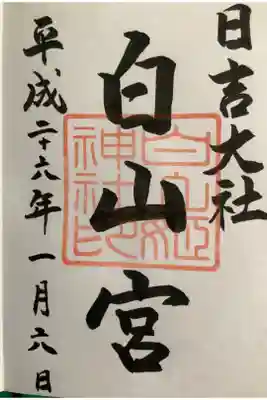 日吉大社
白山宮
白山姫神社印
平成二十六年一月六日